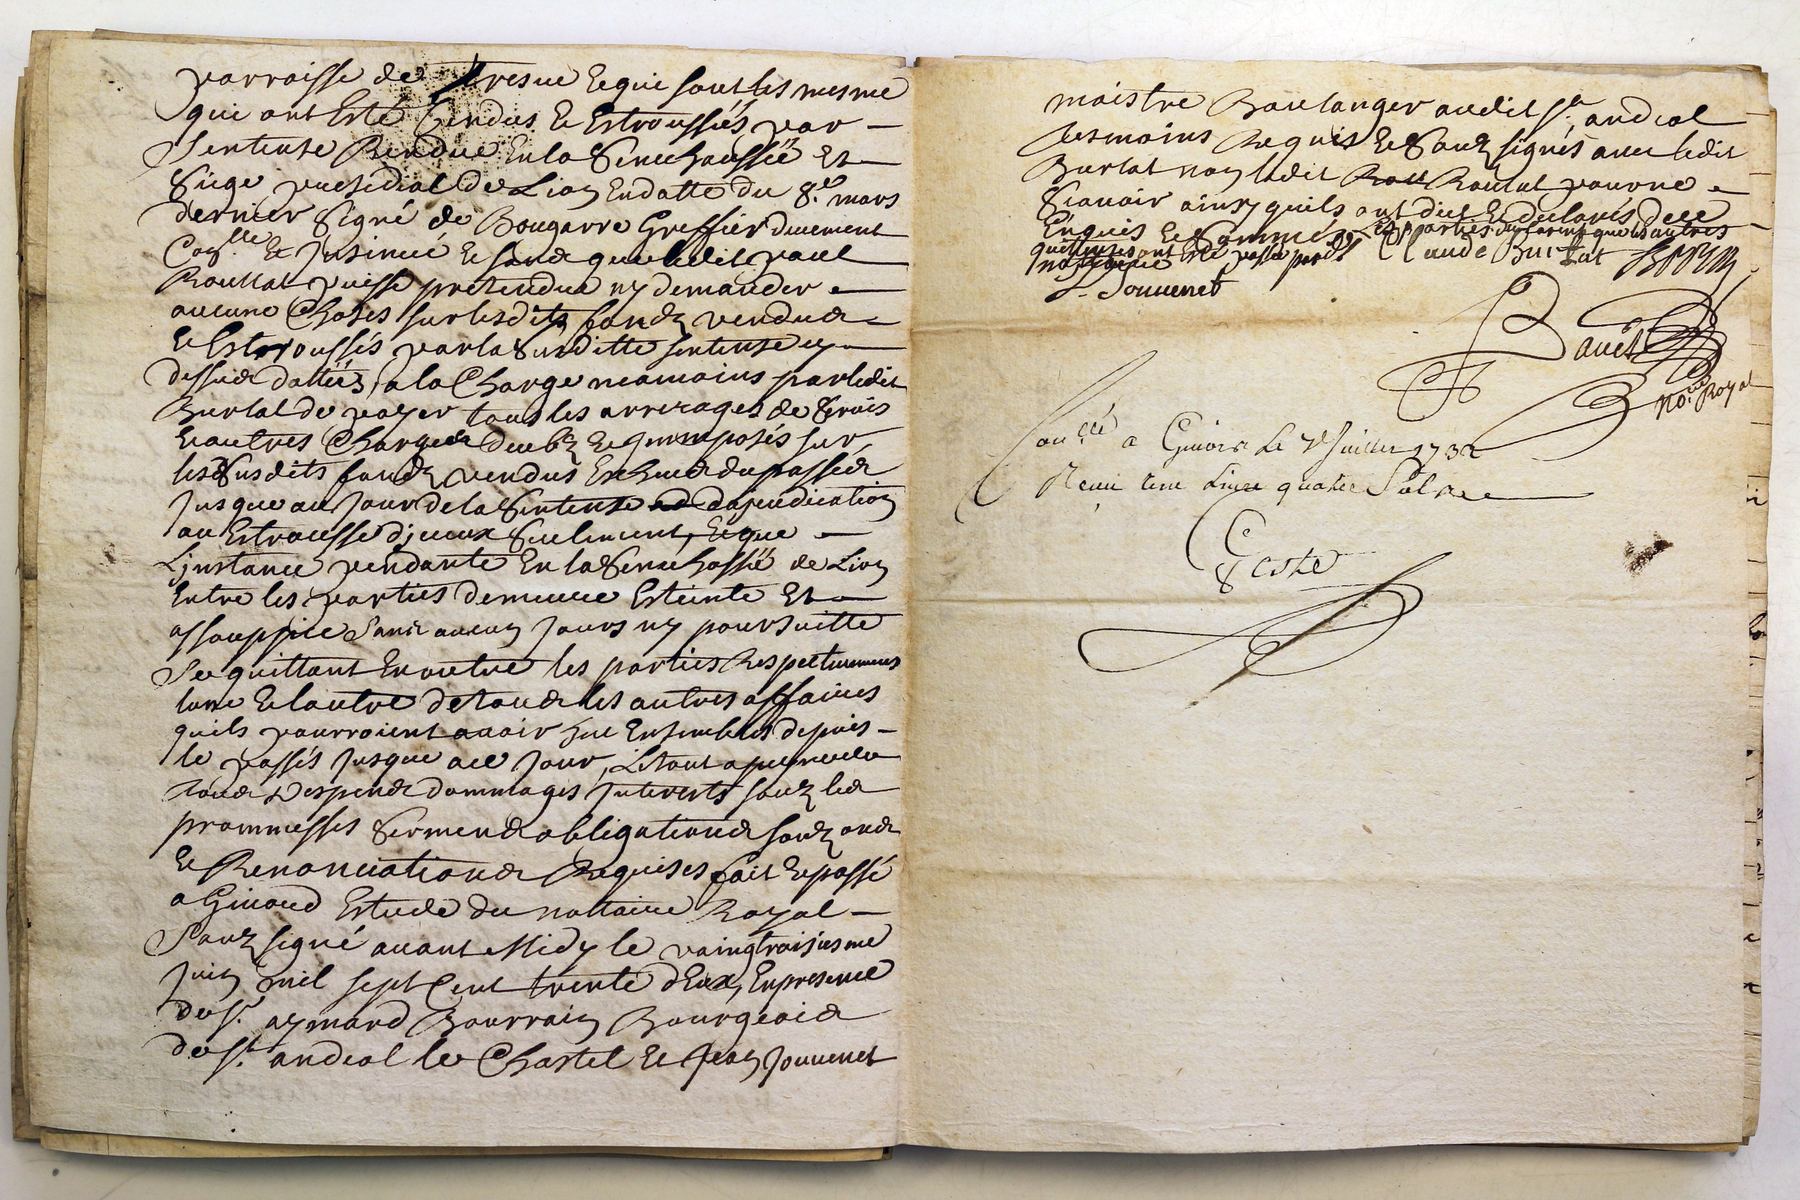 parroisse de Fresne et qui sont les mesme
qui ont Esté Vendus et Estroussés par
Sentense Rendue En la Senechaussée Et
Siege presidial de Lion En datte du 8e. mars
dernier Signé de Bougarre Greffier duement
et Insinué et sans que ledit paul
Roullat puisse pretendre ny demander
aucune Choses sur lesdits fondz vendus
et Estroussés par la Susditte sentense cy
dessus dattéz, a la Charge neamoins par ledit
Burlat de payer tous les arrerages de Servis
et autres Charges deubz et imposés sur
les Susdits fondz vendus Escheus du passée
Jusque au Jour de la Sentense adjeudication
au Estrousse d'jceux Seulement, Et que
L'jnstance pendante En la Senechossé de Lion
Entre les parties demeure Esteinte Et
assouppie Sans aucun Jours ny poursuitte
Se quittant En outre les parties Respectivement
lune Et lautre de tous les autres affaires
quils pourroient auoir Eue Ensembles depuis
le passés Jusque a ce Jour, Le tout a peine de
tous Despends dommages Interests soubz les
prommesses Serments obligations
et Renonciations Requises fait et passé
a Giuord Estude du nottaire Royal
Soubz signé auant Midy le vaingtroisiesme
Juin mil sept Cent trente dEux, En presence
de sr. aymard Bourrain Bourgeois
de st. andeol le Chastel et Jean Jouuenet
maistre Boulanger audit st. andeol
tesmoins Requis et Soubz signés auec ledit
Burlat non ledit Roullat pour ne
Scauoir ainsy quils ont dict et declarés de ce
Enquis et Sommés Les parties declarent que les autres
quittenses ont Esté passé par dt
Claude Burlat
J. Jouuenet
Bauet
no.re Royal
a Giuors Le 7e Juillet 1732
Receu une Livre quatre Sols
Teste